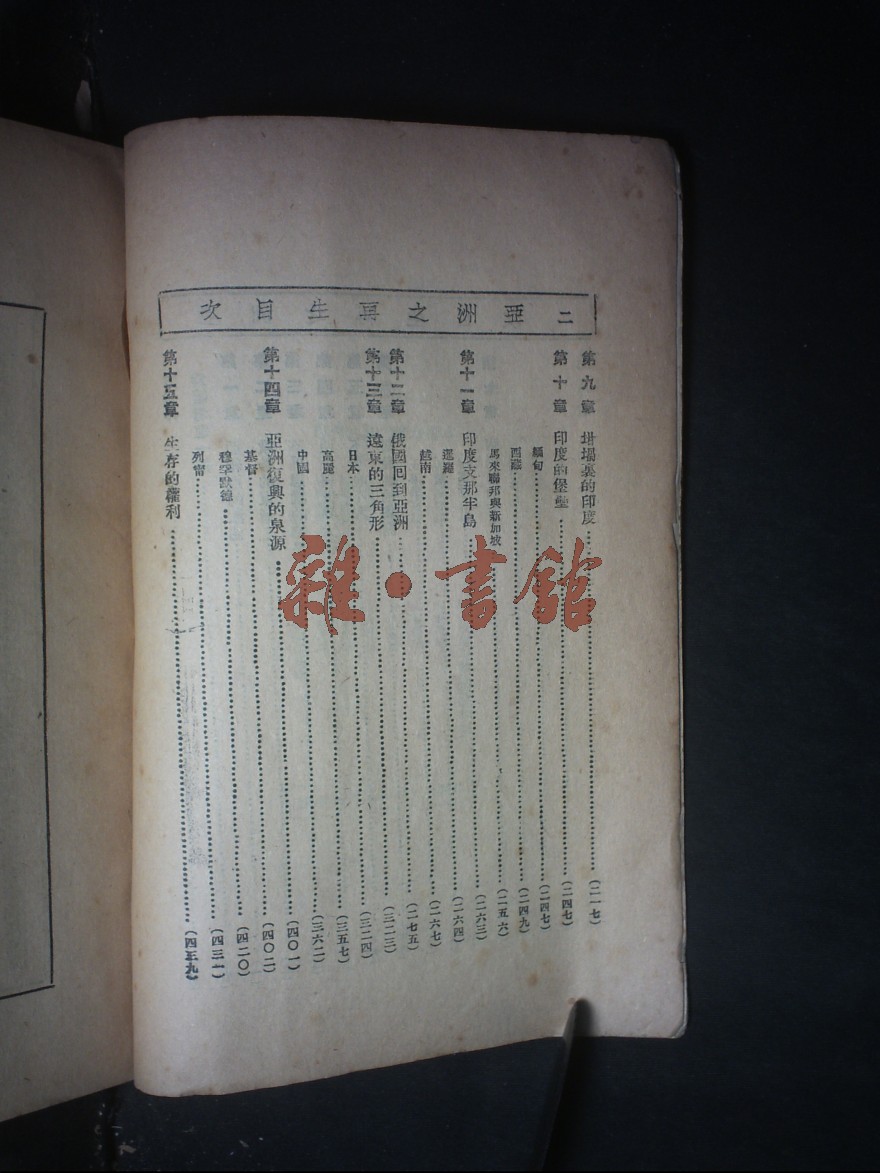 二 亞洲之再生目次
第九章 坍塌裏的印度……(二一七)
第十章 印度的堡壘……(二四七)
緬甸……(二四七)
西藏……(二四九)
馬來聯邦與新加坡……(二五六)
第十一章 印度支那半島……(二六三)
暹羅……(二六四)
越南……(二六七)
第十二章 俄國回到亞洲……(二七五)
第十三章 遠東的三角形……(三二三)
日本……(三二四)
高麗……(三五七)
中國……(三六二)
第十四章 亞洲復興的泉源……(四〇一)
基督……(四〇二)
穆罕默德……(四二〇)
列甯……(四三一)
第十五章 生存的權利……(四三九)
雜·書館